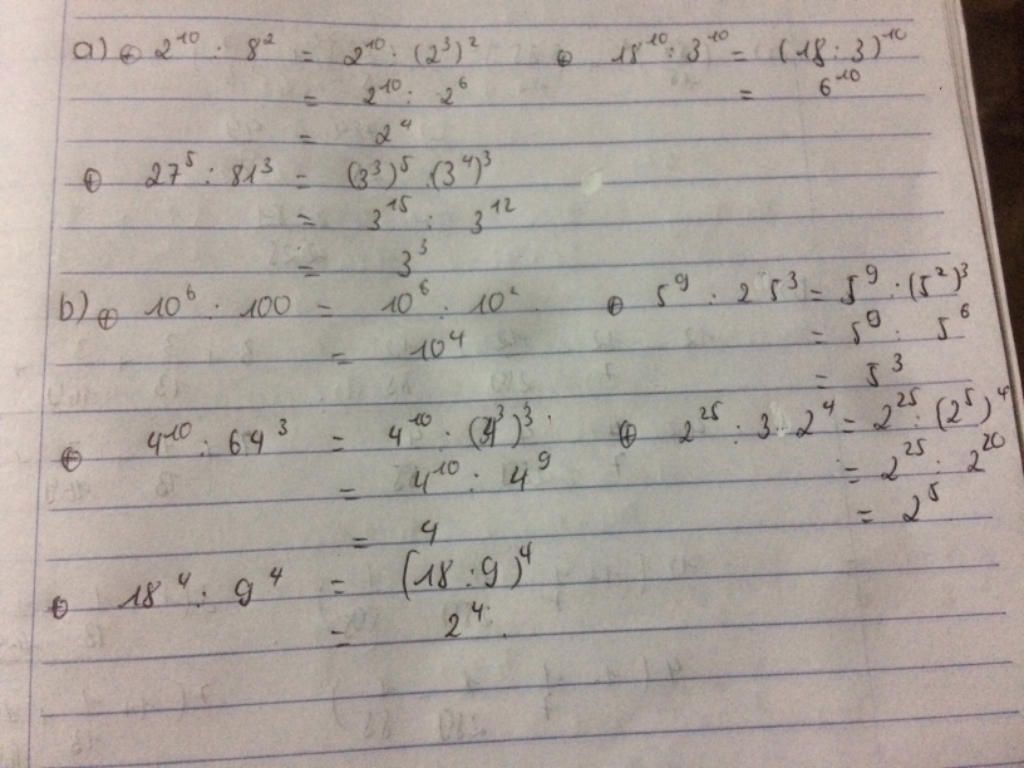 a) ⊕ 2^10 : 8^2 = 2^10 : (2^3)^2 ⊕ 18^10 : 3^10 = (18 : 3)^10
= 2^10 : 2^6 = 6^10
= 2^4
⊕ 27^5 : 81^3 = (3^3)^5 . (3^4)^3
= 3^15 : 3^12
= 3^3
b) ⊕ 10^6 : 100 = 10^6 : 10^2 ⊕ 5^9 : 25^3 = 5^9 : (5^2)^3
= 10^4 = 5^9 : 5^6
= 5^3
⊕ 4^10 : 64^3 = 4^10 : (4^3)^3 ⊕ 2^25 : 3 2^4 = 2^25 : (2^5)^4
= 4^10 : 4^9 = 2^25 : 2^20
= 4 = 2^5
⊕ 18^4 : 9^4 = (18 : 9)^4
= 2^4.